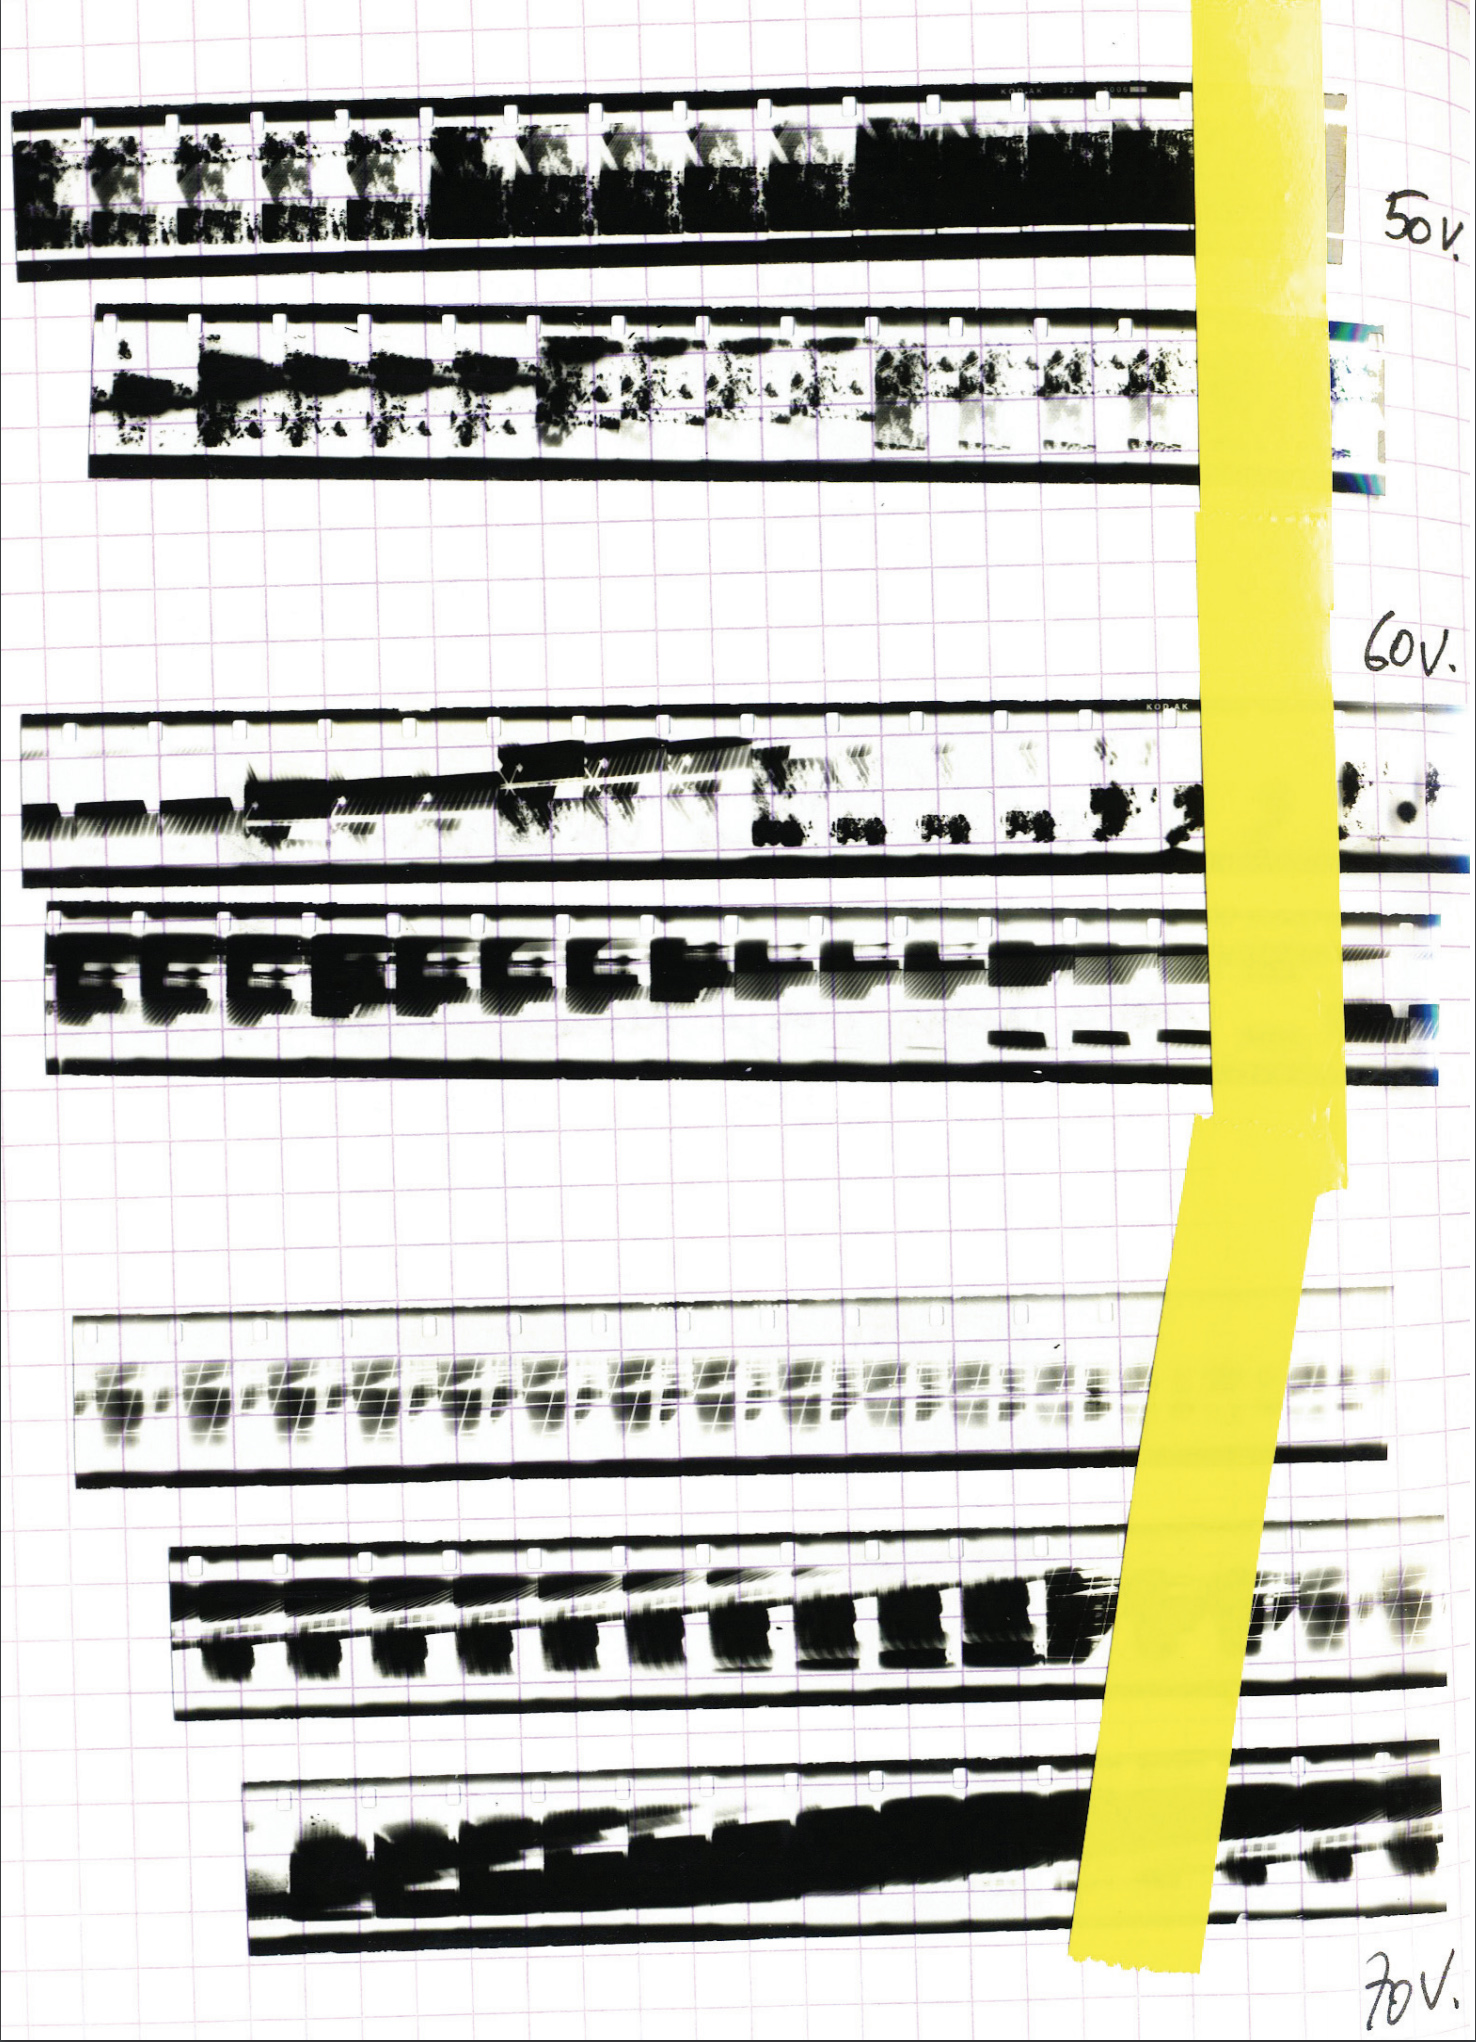 KODAK 32 2006
50V.
60V.
KODAK
70V.